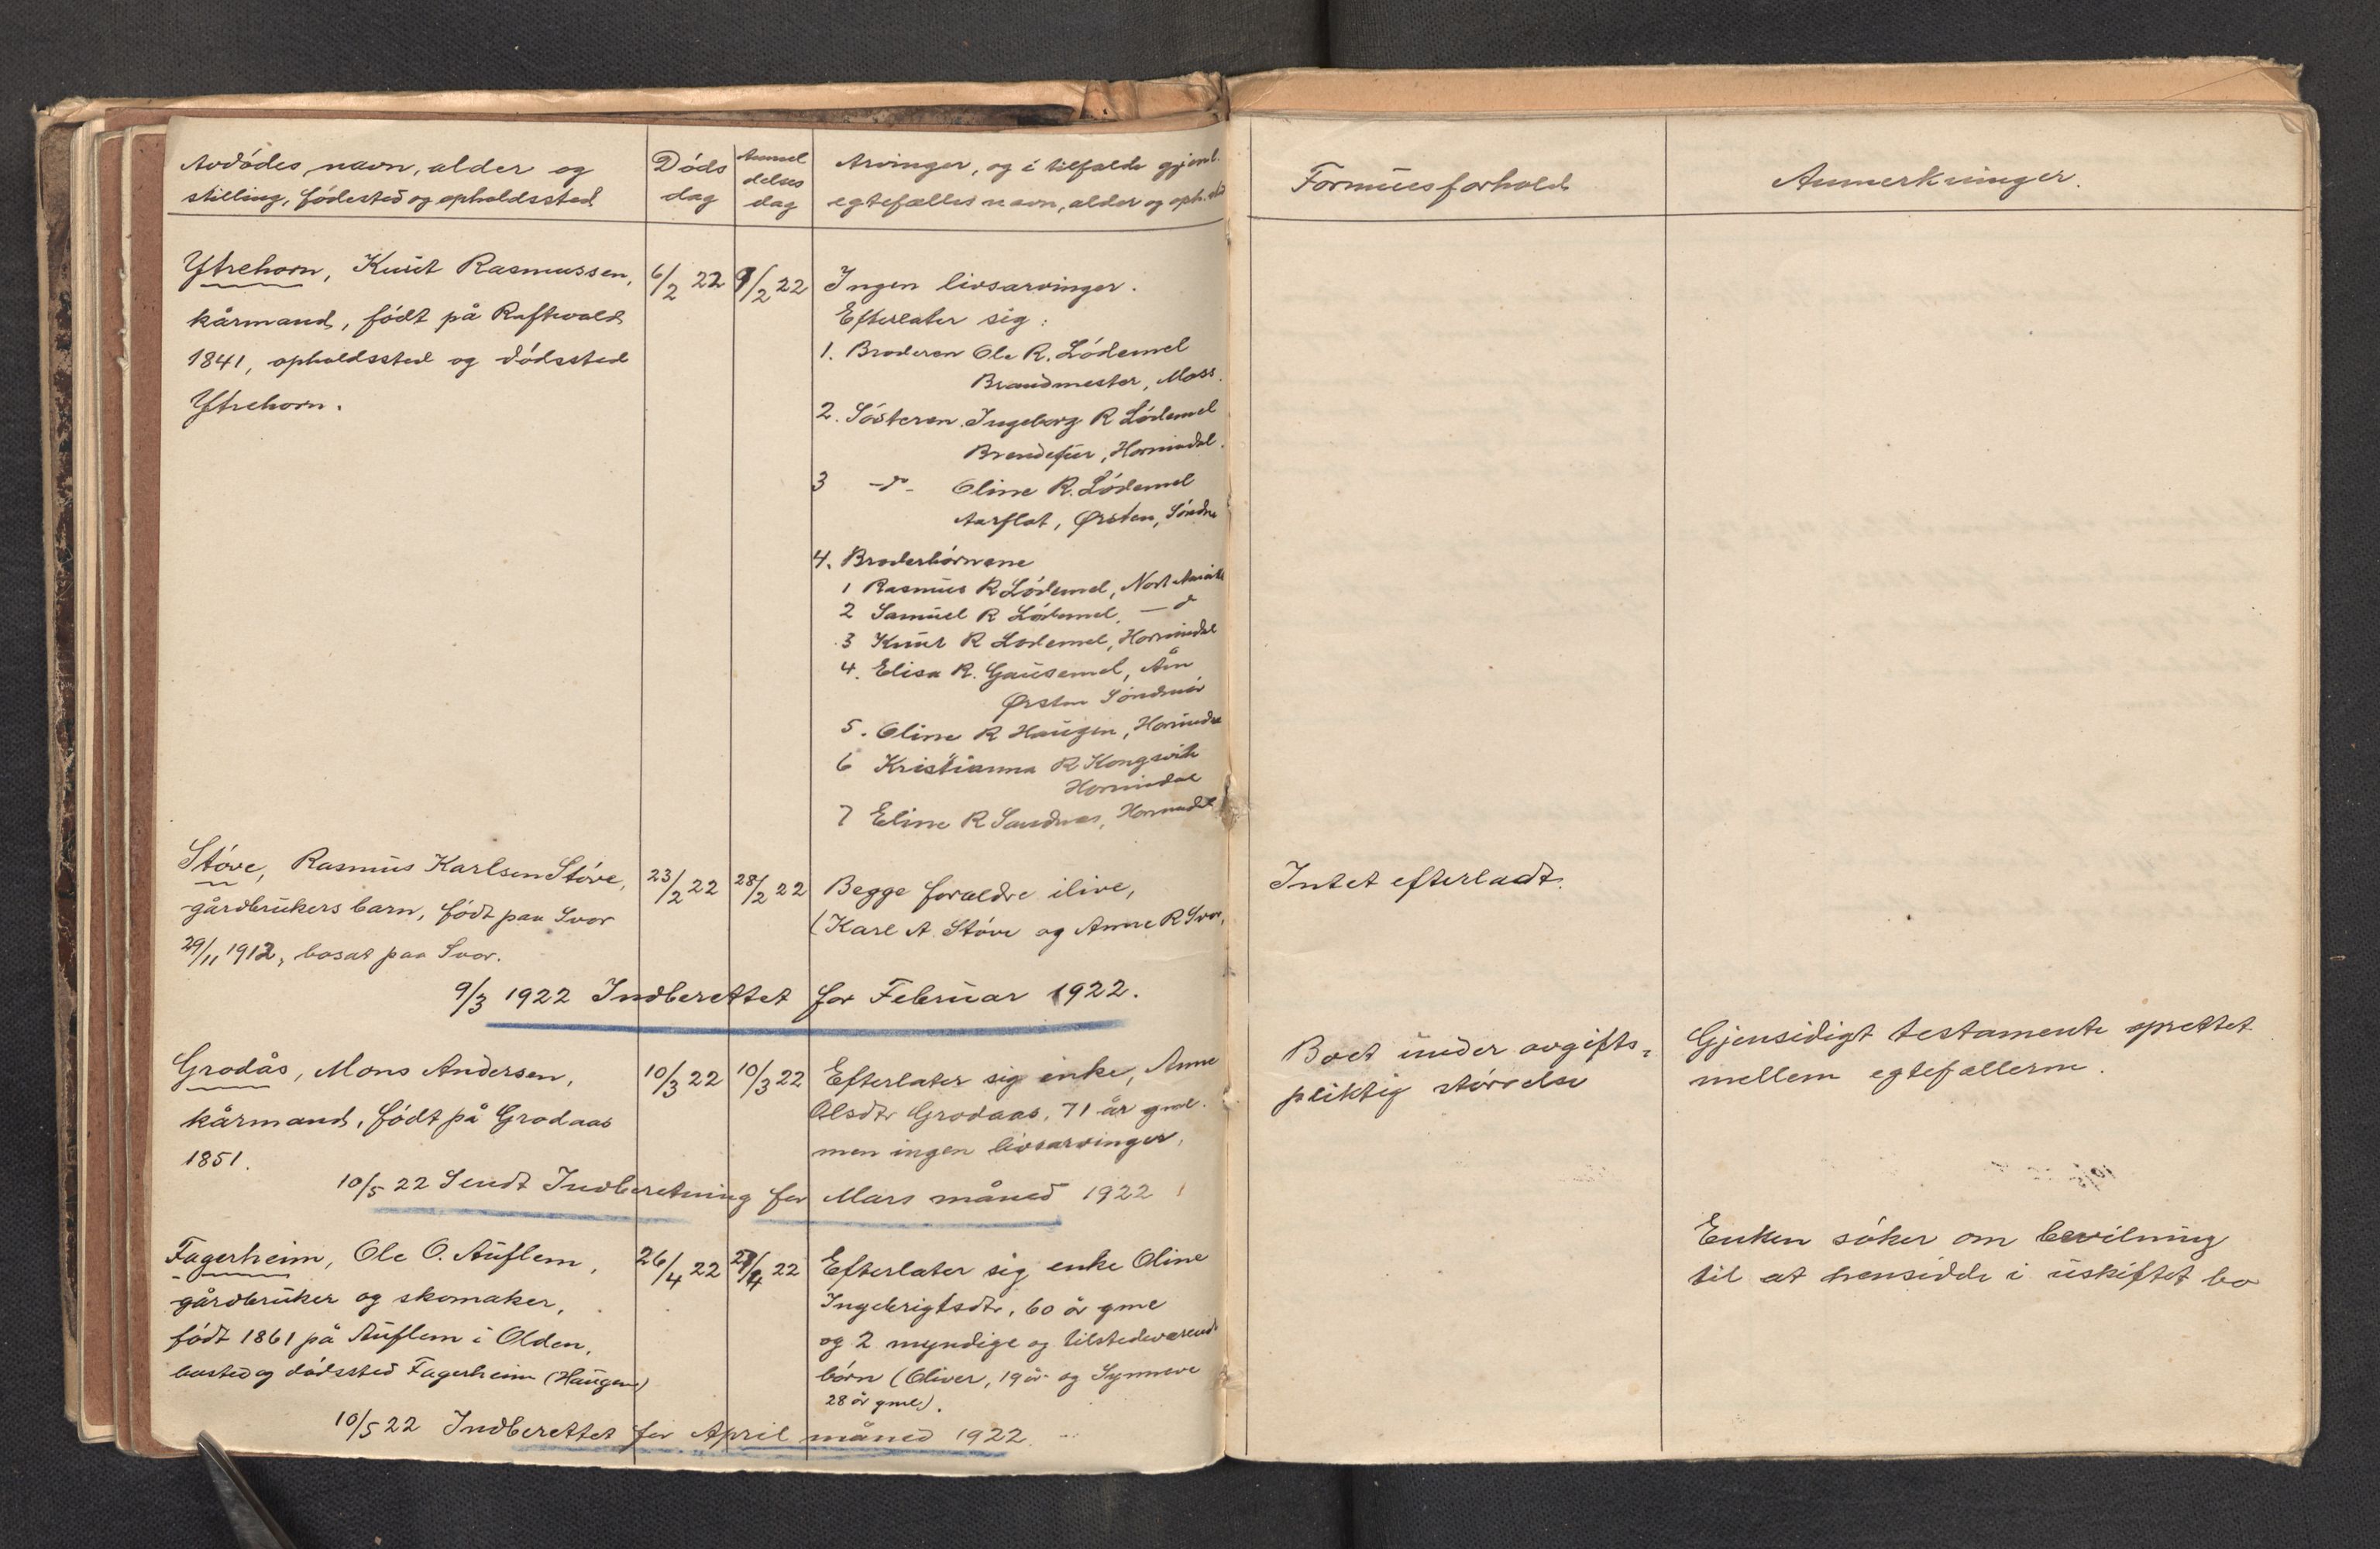 Avdødes navn, alder og
stilling, fødested og opholdssted
Døds
dag
Anmel
delses
dag
Arvinger, og i tilfælde gjenl.
egtefælles navn, alder og oph.sted
Formuesforhold
Anmerkninger.
Ytrehorn, Knut Rasmussen,
kårmand, født på Raftevold
1841, opholdssted og dødssted
Ytrehorn.
6/2 22
9/2 22
Ingen livsarvinger.
Efterlater sig:
1. Broderen Ole R. Lødemel
Brandmester, Moss.
2. Søsteren Ingeborg R Lødemel
Brendefur, Hornindal.
3 -"- Oline R. Lødemel
Aarflot, Ørsten, Søndm
4. Broderbørnene
1 Rasmus R Lødemel, Nord Amerika
2 Samuel R Lødemel — "
3 Knut R Lødemel, Hornindal
4. Elisa R. Gausemel, Åm
Ørsten Søndmør
5. Oline R Haugen, Hornindal
6 Kristianna R Kongsvik
Hornindal
7 Eline R Sandnes, Hornindal
Støve, Rasmus Karlsen Støve,
gårdbrukers barn, født paa Svor
29/11 1912, bosat paa Svor.
23/2 22
28/2 22
Begge forældre ilive,
(Karl A. Støve og Anne R Svor,
Intet efterladt.
9/3 1922 Indberettet for Februar 1922.
Grodås, Mons Andersen,
kårmand, født på Grodaas
1851.
10/3 22
10/3 22
Efterlater sig enke, Anne
Olsdtr Grodaas, 71 år gml.
men ingen livsarvinger.
Boet under avgifts-
pliktig størrelse
Gjensidigt testamente oprettet
mellem egtefællerne.
10/5 22 Sendt Indberetning for Mars måned 1922
Fagerheim, Ole O. Auflem,
gårdbruker og skomaker,
født 1861 på Auflem i Olden,
bosted og dødssted Fagerheim (Haugen)
26/4 22
27/4 22
Efterlater sig enke Oline
Ingebrigtsdtr, 60 år gml
og 2 myndige og tilstedeværende
børn (Oliver, 19 år og Synneve
28 år gml).
Enken søker om bevilning
til at hensidde i uskiftet bo
10/5 22 Indberettet for April måned 1922